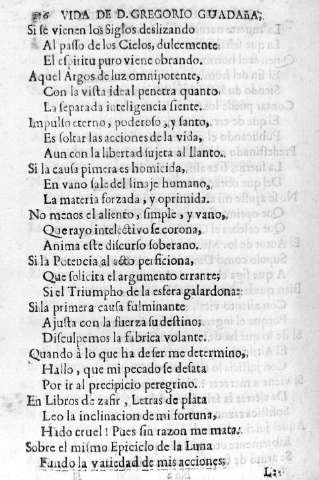 VIDA DE D. GREGORIO GUADAñA,
Si se vienen los Siglos deslizando
Al passo de los Cielos, dulcemente
El espiritu puro viene obrando.
Aquel Argos de luz omnipotente,
Con la vista ideal penetra quanto
La separada inteligencia siente.
Impulso eterno, poderoso, y santo,
Es soltar las acciones de la vida,
Aun con la libertad sujeta al llanto.
Si la causa pimera es homicida,
En vano sale del linaje humano,
La materia forzada, y oprimida.
No menos el aliento, simple, y vano,
Que rayo intelectivo se corona,
Anima este discurso soberano.
Si la Potencia al acto perficiona,
Que solicita el argumento errante;
Si el Triumpho de la esfera galardona:
Si la primera causa fulminante
Ajusta con la fuerza su destino;
Disculpemos la fabrica volante.
Quando à lo que ha de ser me determino,
Hallo, que mi pecado se desata
Por ir al precipicio peregrino.
En Libros de zafir, Letras de plata
Leo la inclinacion de mi fortuna,
Hado cruel! Pues sin razon me mata.
Sobre el mismo Epiciclo de la Luna
Fundo la variedad de mis acciones;